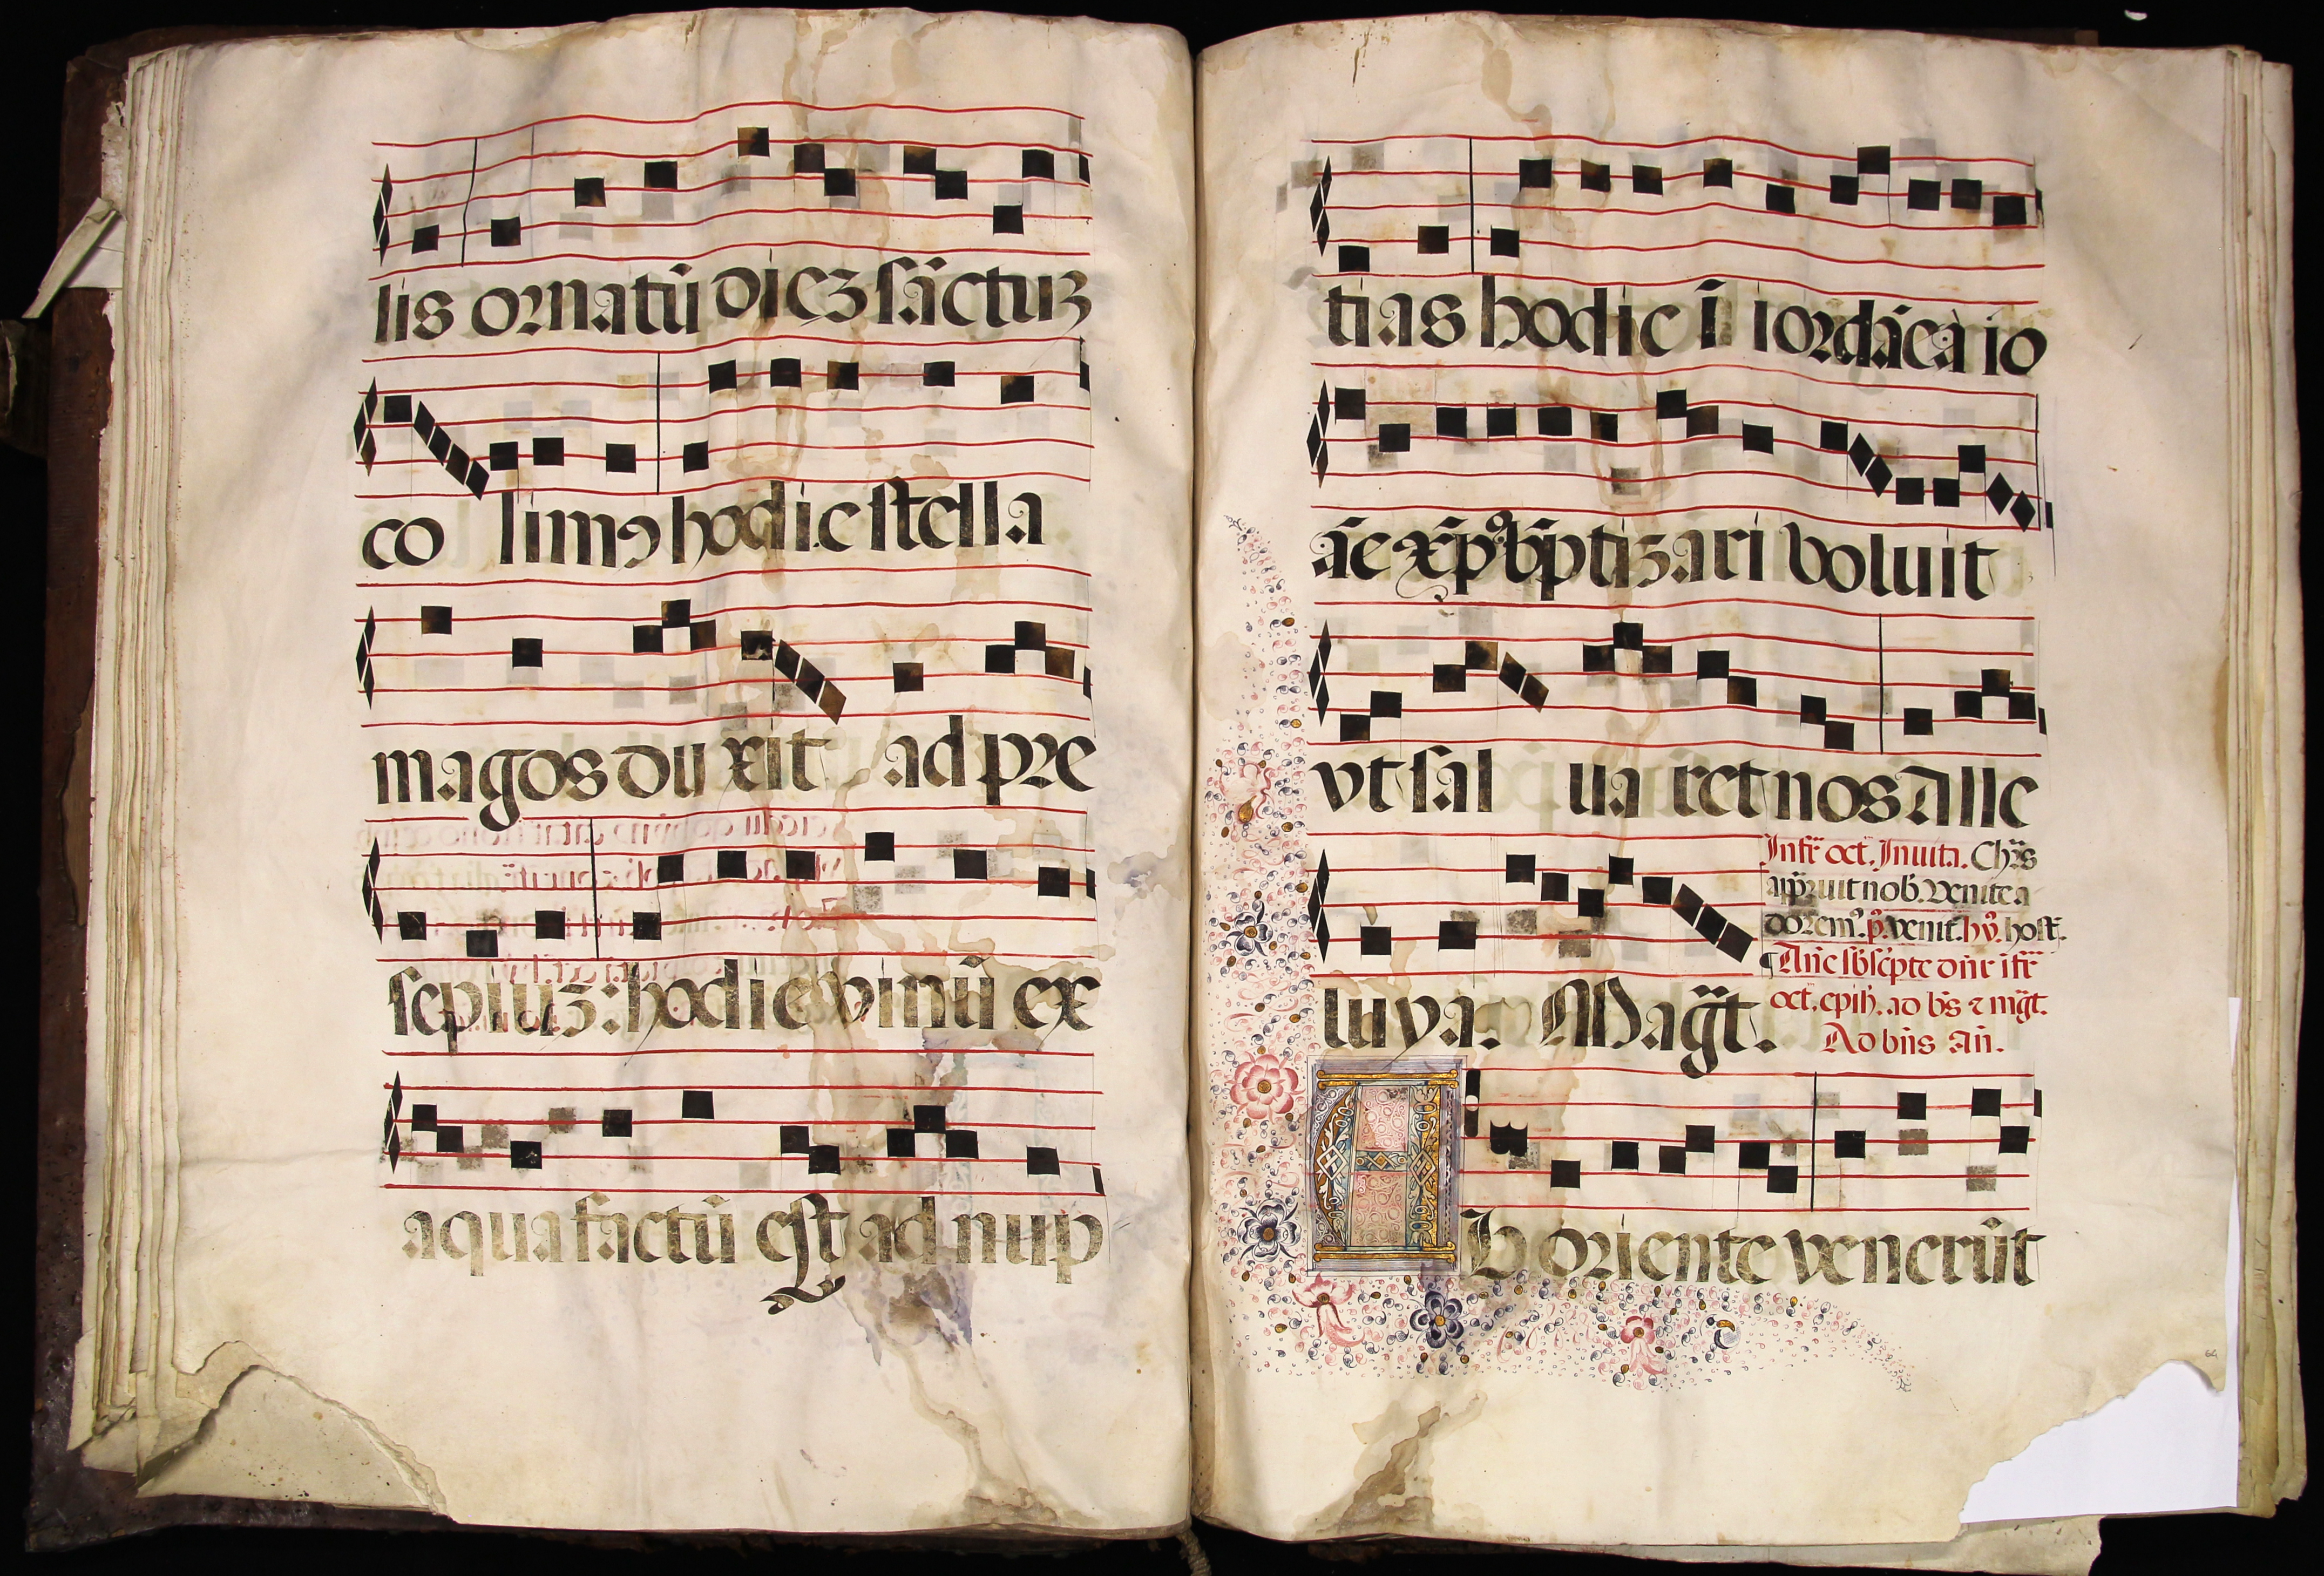 lis ornatū diez sāctuz
co limꝰ hodie stella
magos du xit ad pre
sepiuz: hodie vinū ex
aqua factū est ad nup
tias hodie ī iordāea io
āe xp̄ꝰ bp̄tizari voluit
vt sal ua ret nos Alle
luya. Mag̃t.
Infr̄ oct. Inuita. Chr̄s
app̄ruit nob̄. Venite a
doremꝰ. p̄. venit. hỹ. host.
Añe sb̄scp̄te dn̄r ifr̄
oct. epih̄. ad bs̄ ⁊ mg̃t.
Ad bn̄s añ.
AB oriente venerūt
64